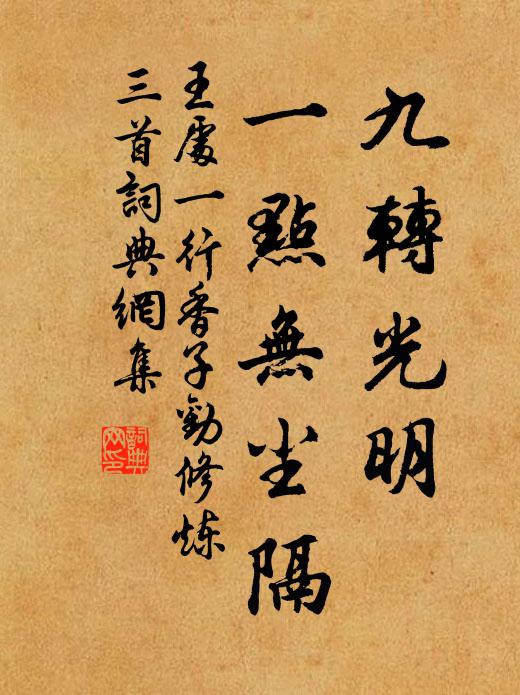 九轉光明
一點無尘隔
王處一行香子勸修炼
三首詞典網集
詞典網印